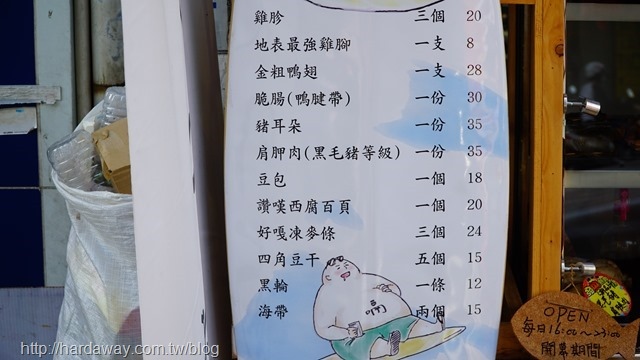 雞胗 三個 20
地表最強雞腳 一支 8
金粗鴨翅 一支 28
脆腸(鴨腱帶) 一份 30
豬耳朵 一份 35
肩胛肉(黑毛豬等級) 一份 35
豆包 一個 18
讚嘆西腐百頁 一個 20
好嘎凍麥條 三個 24
四角豆干 五個 15
黑輪 一條 12
海帶 兩個 15
OPEN
每日16:00~23:00
開幕期間
http://hardaway.com.tw/blog